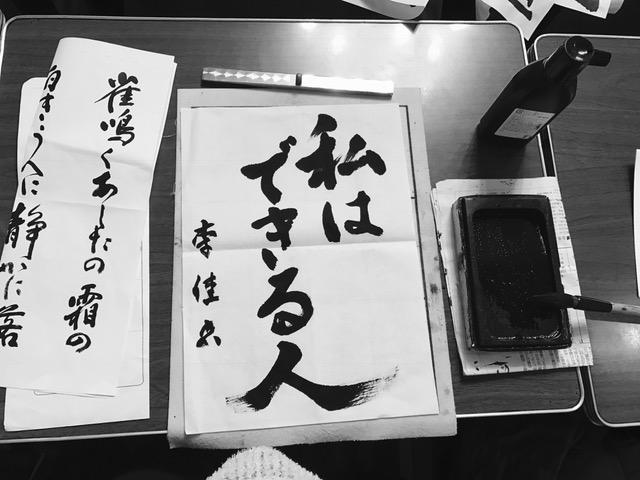 私は
できる人
李佳
雀鳴くあしたの霜の
白きうへに静かに落